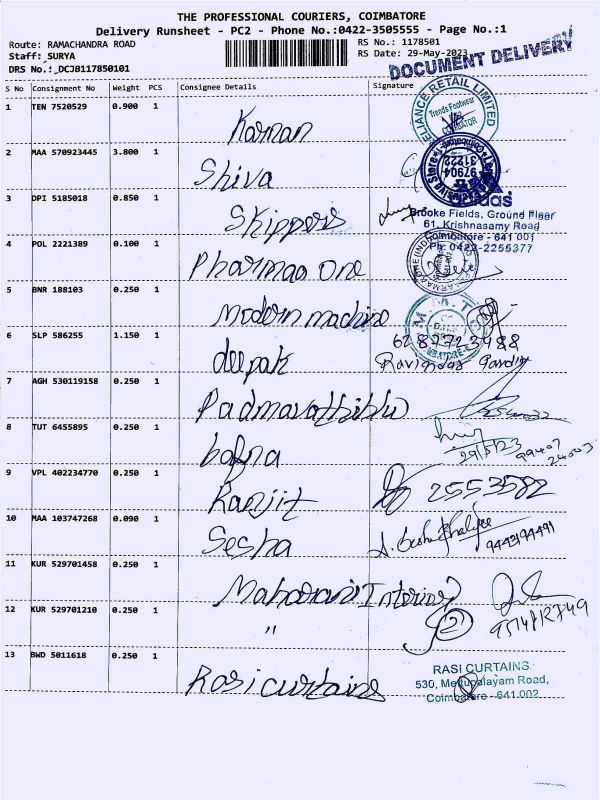 THE PROFESSIONAL COURIERS, COIMBATORE
Delivery Runsheet - PC2 - Phone No.:0422-3505555 - Page No.:1
Route: RAMACHANDRA ROAD
RS No.: 1178501
Staff:_SURYA
RS Date: 29-May-2023
DRS No.:_DCJB117850101
DOCUMENT DELIVERY
S No Consignment No Weight PCS Consignee Details Signature
1 TEN 7520529 0.900 1
Karnan
RELIANCE RETAIL LIMITED
Trends Footwear
COIMBATORE
2 MAA 570923445 3.800 1
Shiva
97904
31222
3 DPI 5185018 0.850 1
Skippers
adidas
Brooke Fields, Ground Floor
61, Krishnasamy Road
Coimbatore - 641 001
Ph: 0422-2255377
4 POL 2221389 0.100 1
Pharmaa one
5 BNR 188103 0.250 1
Modern machine
M.M.T.C
6 SLP 586255 1.150 1
deepak
7 AGH 530119158 0.250 1
8 TUT 6455895 0.250 1
bafna
29/5/23
99407
24003
9 VPL 402234770 0.250 1
Ranjit
2553582
10 MAA 103747268 0.090 1
Sesha
9442194491
11 KUR 529701458 0.250 1
Maharani Interior
12 KUR 529701210 0.250 1
"
2
13 BWD 5011618 0.250 1
Rasi curtains
RASI CURTAINS
530, Mettupalayam Road,
Coimbatore - 641 002